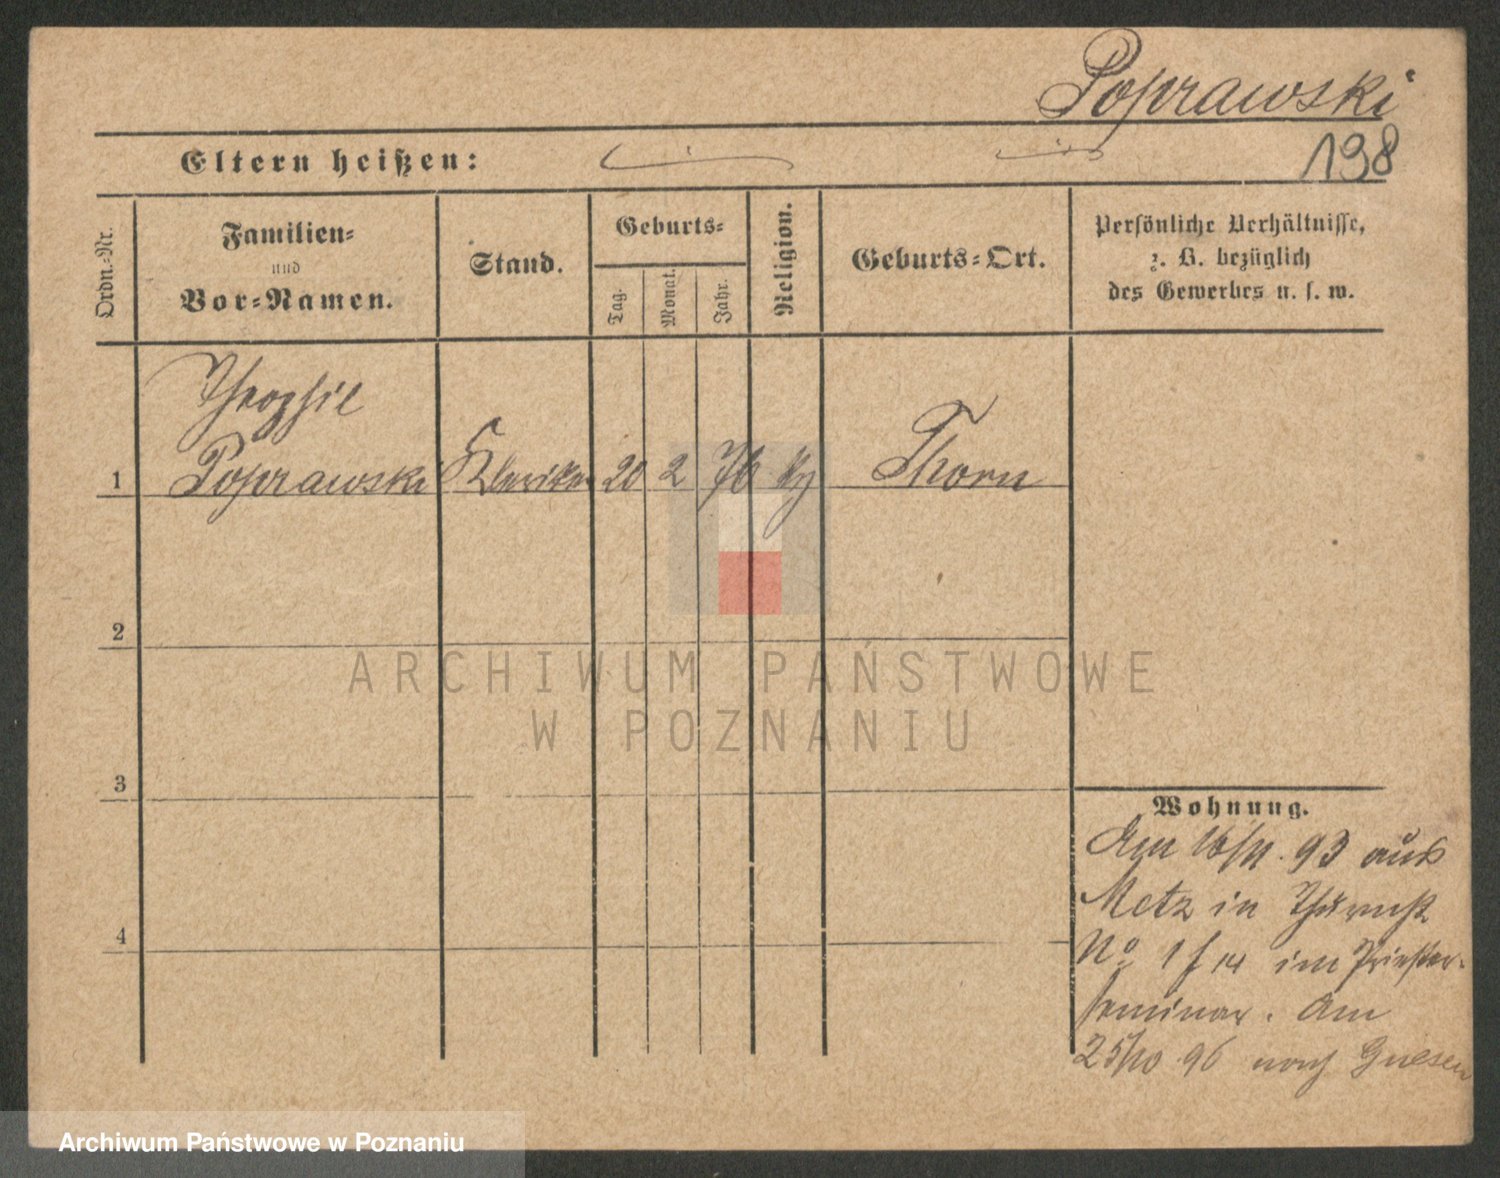 Poprawski
Eltern heißen:
198
Ordn.-Nr.
Familien-
und
Vor-Namen.
Stand.
Geburts-
Tag.
Monat.
Jahr.
Religion.
Geburts-Ort.
Persönliche Verhältnisse,
z. B. bezüglich
des Gewerbes u. s. w.
Theophil
1 Poprawski Kleriker 20 2 76 Thorn
2
3
4
Wohnung.
Am 16/11. 93 aus
Metz in
No 1 im Priester-
seminar. Am
25/10 96 nach Gnesen
ARCHIWUM PAŃSTWOWE
W POZNANIU
Archiwum Państwowe w Poznaniu